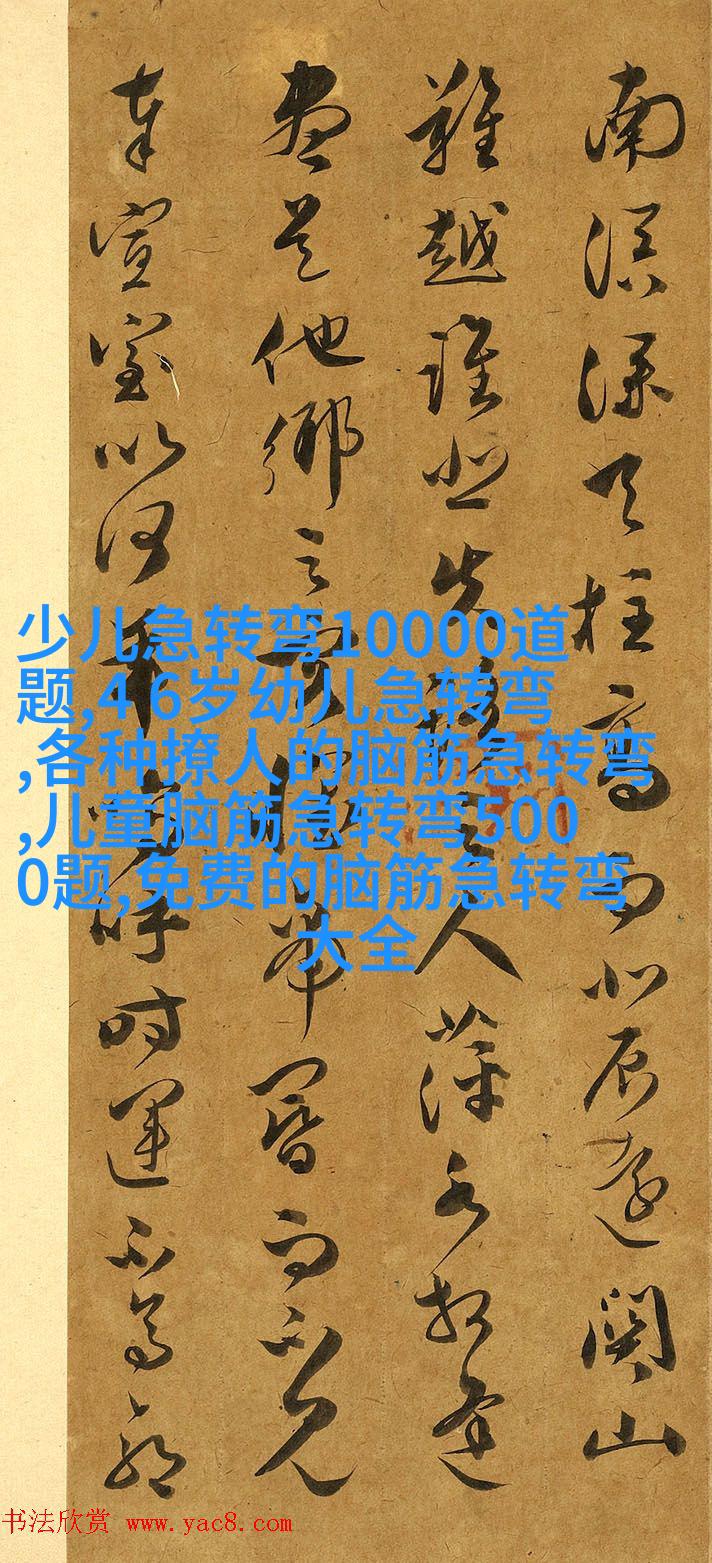 南溟深天柱高而北辰遠關山
難越誰悲失路之人萍水相逢
盡是他鄉之客懷帝閽而不見
奉宣室以何年嗚呼時運不齊命
少儿急转弯10000道
题,4-6岁幼儿急转弯
,各种撩人的脑筋急转弯
,儿童脑筋急转弯500
0题,免费的脑筋急转弯
大全
书法欣赏 www.yac8.com